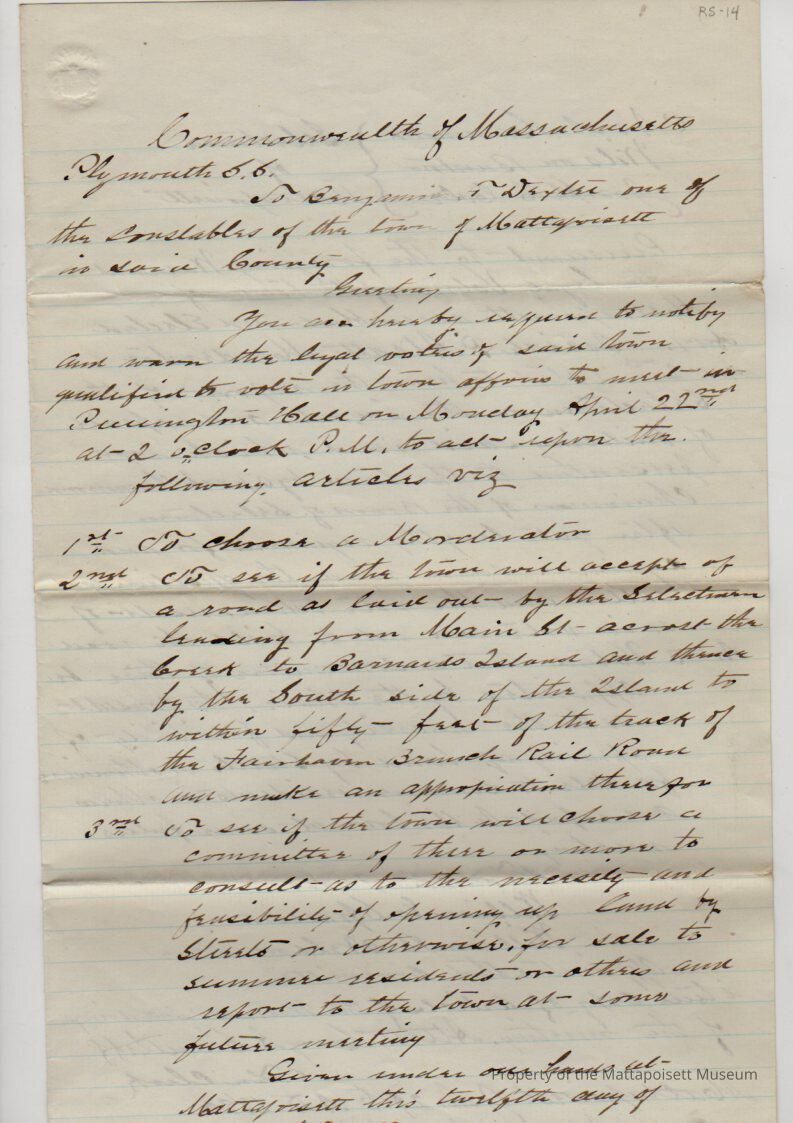 RS-14
Commonwealth of Massachusetts
Plymouth S.S.
To Benjamin F Dexter one of
the constables of the town of Mattapoisett
in said County
Greeting
You are hereby required to notify
and warn the legal voters of said town
qualified to vote in town affairs to meet in
Purrington Hall on Monday April 22nd
at 2 o,clock P.M. to act upon the
following articles viz
1st To choose a Morderator
2nd To see if the town will accept of
a road as laid out by the Selectmen
leading from Main St acrost the
Creek to Barnards Island and thence
by the South side of the Island to
within fifty feet of the track of
the Fairhaven Branch Rail Road
and make an appropriation therefor
3rd To see if the town will choose a
committee of three or more to
consult as to the necesity and
feasibility of opening up land by
Streets or otherwise, for sale to
summer residents or others and
report to the town at some
future meeting
Given under our hands at
Mattapoisett this twelfth day of
Property of the Mattapoisett Museum